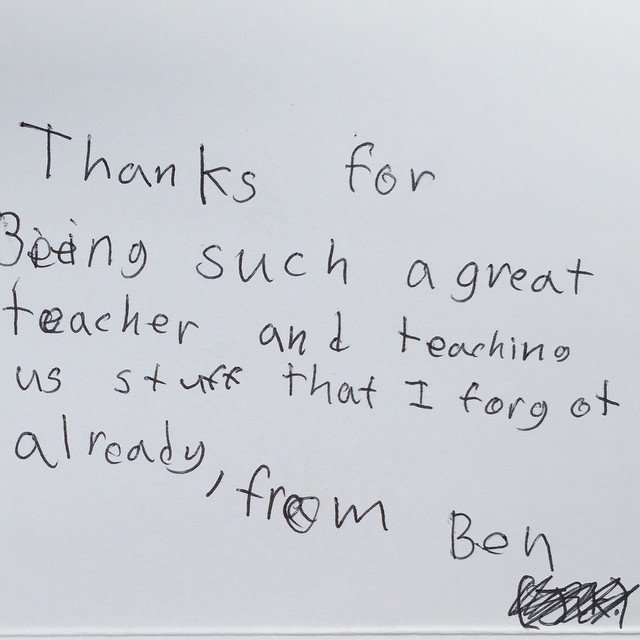 Thanks for
Being such a great
teacher and teaching
us stuff that I forgot
already, from Ben